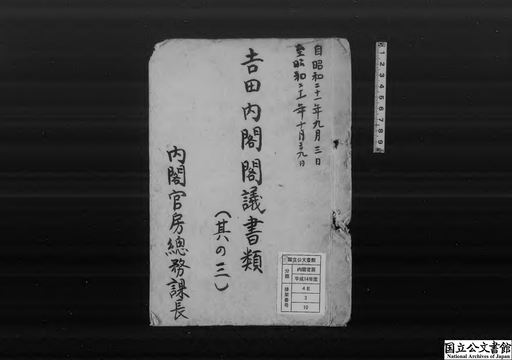 自昭和二十一年九月三日
至昭和二十一年十月九日
吉田内閣閣議書類
(其の三)
内閣官房總務課長
国立公文書館
分類
内閣官房
平成14年度
4E
排架番号
3
10
国立公文書館
National Archives of Japan